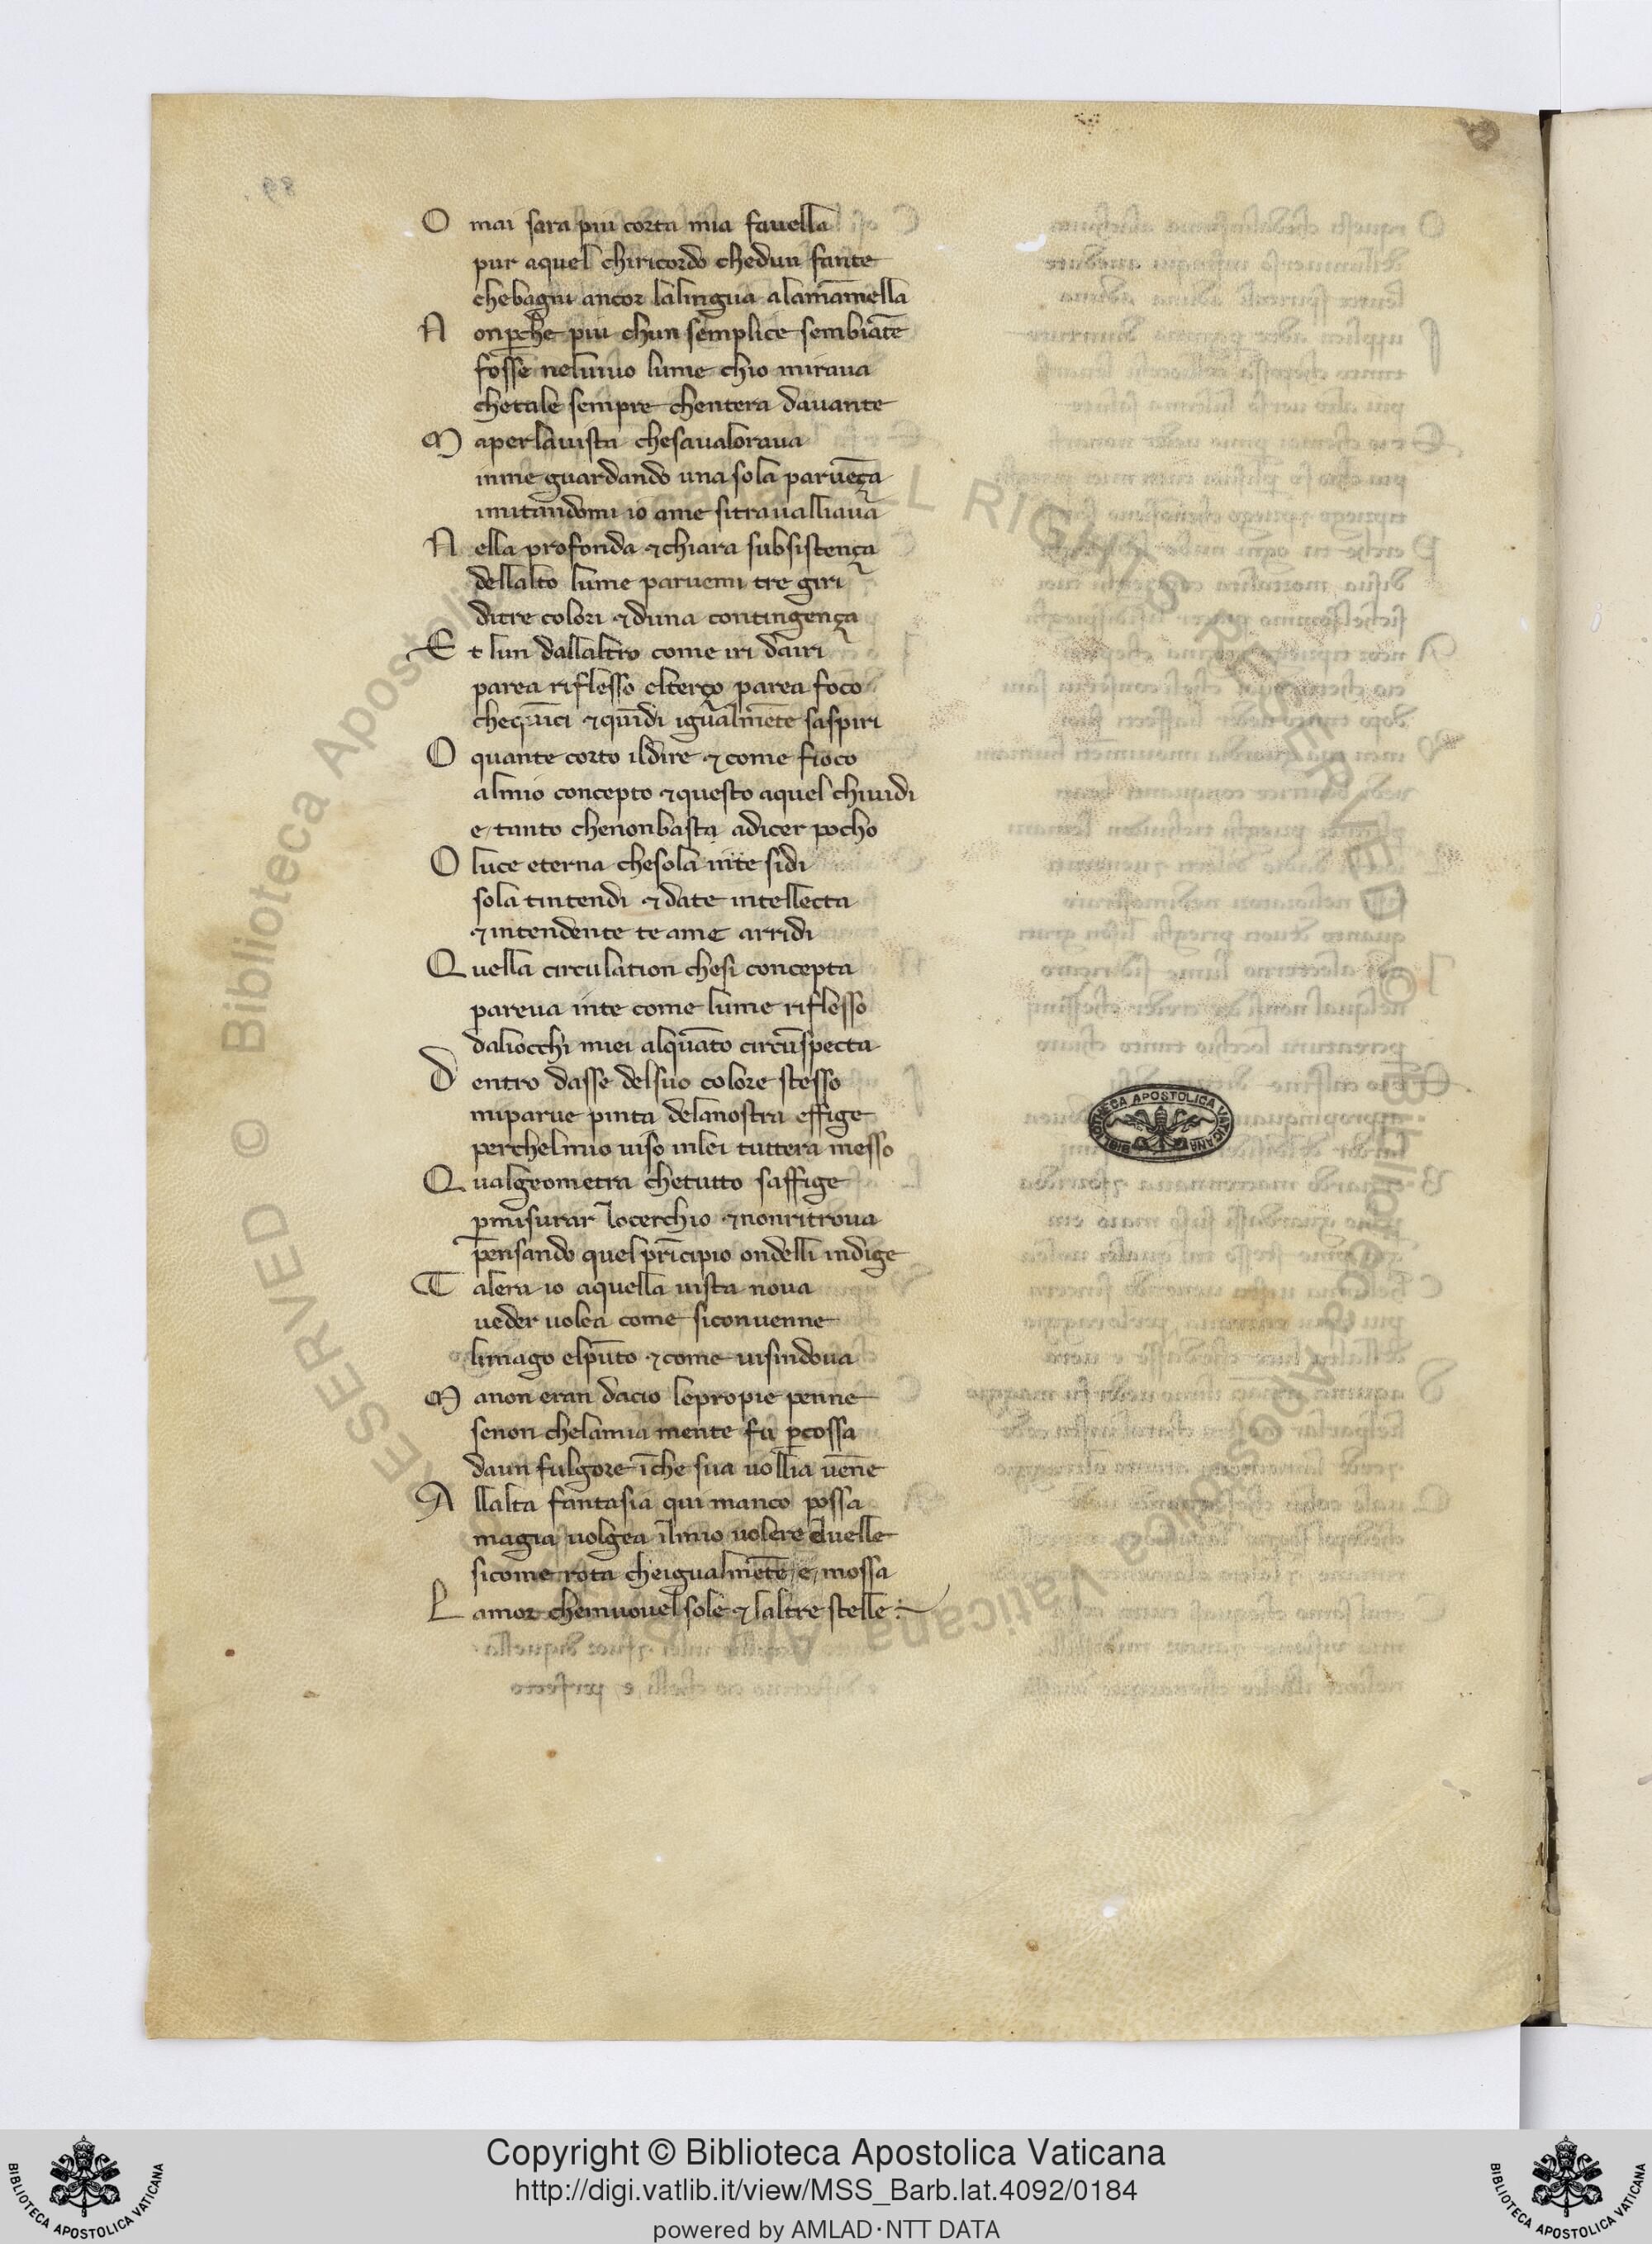 O mai sara piu corta mia fauella
pur aquel chiricordo chedun fante
chebagni ancor lalingua alamāmella
N onꝑche piu chun semplice sembiāte
fosse neluiuo lume chio miraua
chetale sempre chentera dauante
M aperlauista chesaualoraua
inme guardando una sola paruēça
mutandomi io ame sitraualliaua
N ella profonda ⁊chiara subsistença
dellalto lume paruemi tre giri
ditre colori ⁊duna contingença
E t lun dallaltro come iri dairi
parea riflesso elterço parea foco
chequīci ⁊quīdi igualmēte saspiri
O quante corto ildire ⁊come fioco
almio concepto ⁊questo aquel chiuidi
e tanto chenonbasta adicer pocho
O luce eterna chesola inte sidi
sola tintendi ⁊date intellecta
⁊intendente te ame arridi
Q uella circulation chesi concepta
pareua inte come lume riflesso
daliocchi miei alquāto circūspecta
D entro dasse delsuo colore stesso
miparue pinta delanostra effige
perchelmio uiso inlei tuttera messo
Q ualgeometra chetutto saffige
ꝑmisurar locerchio ⁊nonritroua
pensando quel prīcipio ondelli indige
T alera io aquella uista noua
ueder uolea come siconuenne
limago elpūto ⁊come uisindoua
M anon eran dacio lepropie penne
senon chelamia mente fu ꝑcossa
daun fulgore īche sua uollia uēne
A llalta fantasia qui manco possa
magia uolgea ilmio uolere eluelle
sicome rota cheigualmēte e mossa
L amor chemuouel sole ⁊laltre stelle
BIBLIOTECA APOSTOLICA VATICANA
© Biblioteca Apostolica Vaticana ALL RIGHTS RESERVED
Copyright © Biblioteca Apostolica Vaticana
http://digi.vatlib.it/view/MSS_Barb.lat.4092/0184
powered by AMLAD·NTT DATA
BIBLIOTECA APOSTOLICA VATICANA
BIBLIOTECA APOSTOLICA VATICANA